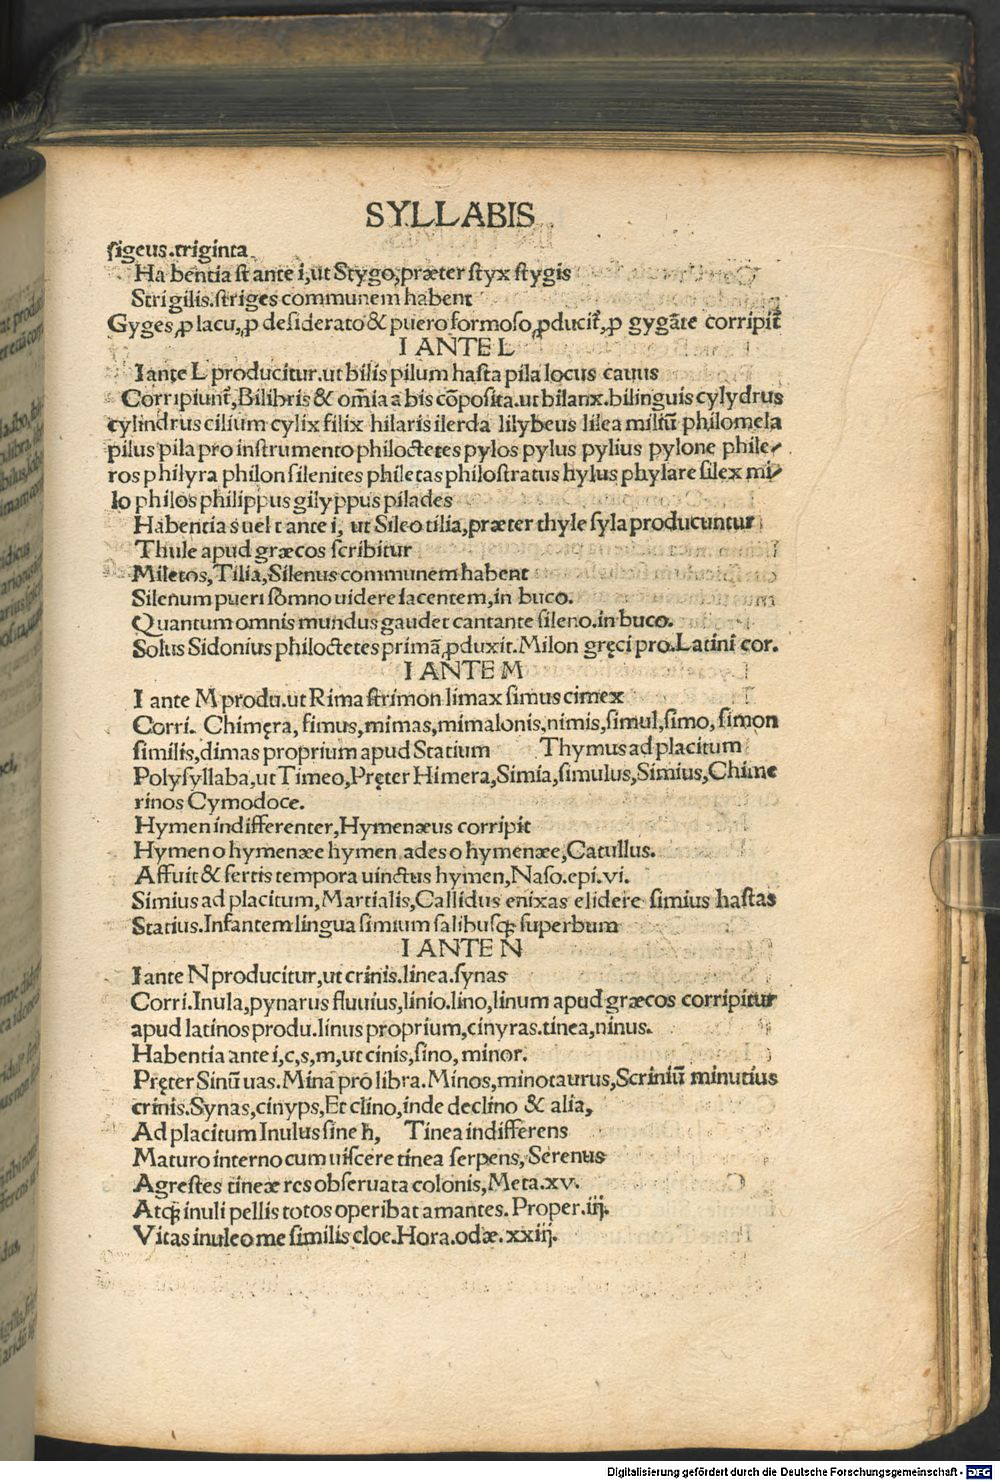 SYLLABIS
sigeus.triginta
Habentia st ante i,ut Stygo,præter styx stygis
Strigilis.striges communem habent
Gyges,ꝓ lacu,ꝓ desiderato & puero formoso,ꝓducit̃,ꝓ gygãte corripit̃
I ANTE L
I ante L producitur.ut bilis pilum hasta pila locus cauus
Corripiunt̃,Bilibris & om̃ia a bis cõposita.ut bilanx.bilinguis cylydrus
cylindrus cilium cylix filix hilaris ilerda lilybeus lilea miliũ philomela
pilus pila pro instrumento philoctetes pylos pylus pylius pylone phile/
ros philyra philon silenites philetas philostratus hylus phylare silex mi/
lo philos philippus gilyppus pilades
Habentia s uel t ante i, ut Sileo tilia,præter thyle syla producuntur
Thule apud græcos scribitur
Miletos,Tilia,Silenus communem habent
Silenum pueri somno uidere iacentem,in buco.
Quantum omnis mundus gaudet cantante sileno.in buco.
Solus Sidonius philoctetes primã ꝓduxit.Milon gręci pro.Latini cor.
I ANTE M
I ante M produ.ut Rima strimon limax simus cimex
Corri. Chimęra, fimus,mimas,mimalonis,nimis,simul,simo,simon
similis,dimas proprium apud Statium Thymus ad placitum
Polysyllaba,ut Timeo,Pręter Himera,Simia,simulus,Simius,Chime
rinos Cymodoce.
Hymen indifferenter,Hymenæus corripit
Hymen o hymenæe hymen ades o hymenæe,Catullus.
Affuit & sertis tempora uinctus hymen,Naso.epi.vi.
Simius ad placitum,Martialis,Callidus enixas elidere simius hastas
Statius.Infantem lingua simium salibusqȝ superbum
I ANTE N
I ante N producitur,ut crinis.linea.synas
Corri.Inula,pynarus fluuius,linio.lino,linum apud græcos corripitur
apud latinos produ.linus proprium,cinyras.tinea,ninus.
Habentia ante i,c,s,m,ut cinis,sino, minor.
Pręter Sinũ uas.Mina pro libra.Minos,minotaurus,Scriniũ minutius
crinis.Synas,cinyps,Et clino,inde declino & alia,
Ad placitum Inulus sine h, Tinea indifferens
Maturo interno cum uiscere tinea serpens,Serenus
Agrestes tineæ res obseruata colonis,Meta.xv.
Atqȝ inuli pellis totos operibat amantes.Proper.iij.
Vitas inuleo me similis cloe.Hora.odæ.xxiij.
Digitalisierung gefördert durch die Deutsche Forschungsgemeinschaft - DFG